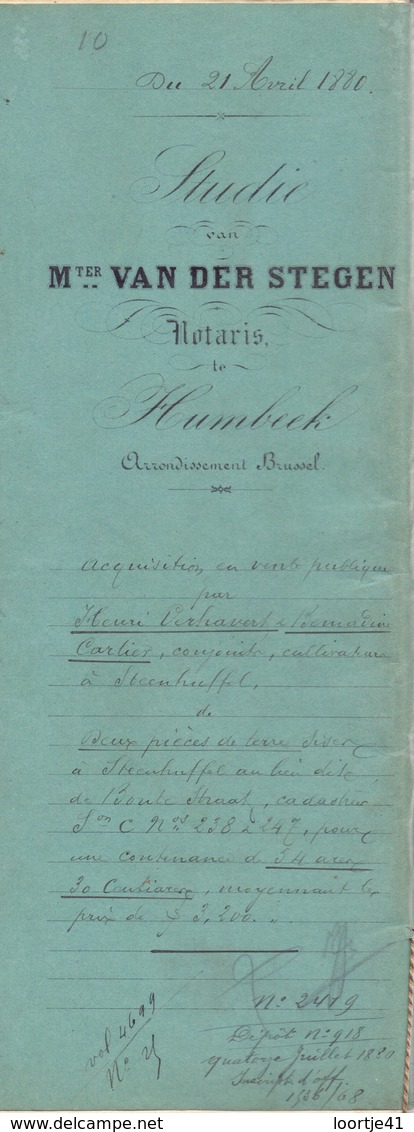 10
Du 21 Avril 1880.
Studie
van
MTER VAN DER STEGEN
Notaris,
te
Humbeek
Arrondissement Brussel.
Acquisition en vente publique
par
Henri Verhavert & Bernadine
Carlier, conjoints, cultivateurs
à Steenhuffel,
de
Deux pièces de terre sises
à Steenhuffel au lieu dit
de Bonte Straat, cadastrées
Son C Nos 238 & 247, pour
une contenance de 34 ares
30 Centiares, moyennant le
prix de 3,200.
No 2419
Dépôt no 918
quatorze Juillet 1880
Inscript d'off
1536/68
vol 4699
No 25
www.delcampe.net
loortje41